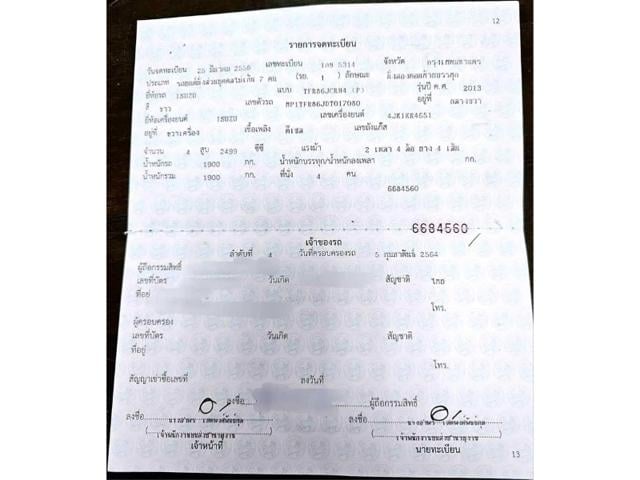 12
รายการจดทะเบียน
วันจดทะเบียน 25 มีนาคม 2556 เลขทะเบียน 1กข 5314 จังหวัด กรุงเทพมหานคร
ประเภท รถยนต์นั่งส่วนบุคคลไม่เกิน 7 คน (รย. 1 ) ลักษณะ นั่งสองตอนท้ายบรรทุก
ยี่ห้อรถ ISUZU แบบ TFR86JCRH4 (P) รุ่นปี ค.ศ. 2013
สี ขาว เลขตัวรถ MP1TFR86JDT017080 อยู่ที่ กลางขวา
ยี่ห้อเครื่องยนต์ ISUZU เลขเครื่องยนต์ 4JK1KR4651
อยู่ที่ ขวาเครื่อง เชื้อเพลิง ดีเซล เลขถังแก๊ส
จำนวน 4 สูบ 2499 ซีซี แรงม้า 2 เพลา 4 ล้อ ยาง 4 เส้น
น้ำหนักรถ 1900 กก. น้ำหนักบรรทุก/น้ำหนักลงเพลา กก.
น้ำหนักรวม 1900 กก. ที่นั่ง 4 คน
6684560
6684560
เจ้าของรถ
ลำดับที่ 4 วันที่ครอบครองรถ 5 กุมภาพันธ์ 2564
ผู้ถือกรรมสิทธิ์
เลขที่บัตร วันเกิด สัญชาติ ไทย
ที่อยู่
โทร.
ผู้ครอบครอง
เลขที่บัตร วันเกิด สัญชาติ
ที่อยู่
โทร.
สัญญาเช่าซื้อเลขที่ ลงวันที่
ลงชื่อ ผู้ถือกรรมสิทธิ์
ลงชื่อ ลงชื่อ
เจ้าหน้าที่ นายทะเบียน
13